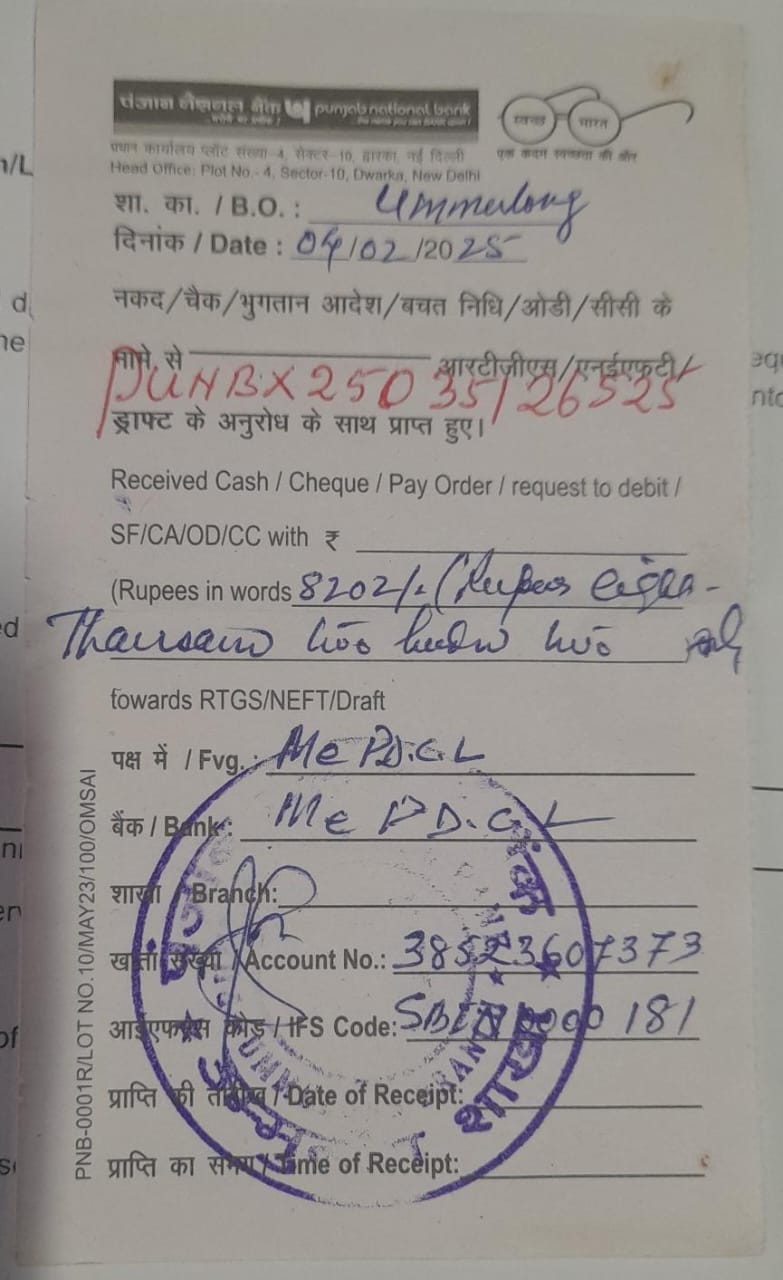 पंजाब नैशनल बैंक punjab national bank
स्वच्छ भारत
एक कदम स्वच्छता की ओर
प्रधान कार्यालय प्लॉट संख्या-4, सेक्टर-10, द्वारका, नई दिल्ली
Head Office: Plot No.- 4, Sector-10, Dwarka, New Delhi
शा. का. / B.O. : Ummulong
दिनांक / Date : 04/02/2025
नकद/चैक/भुगतान आदेश/बचत निधि/ओडी/सीसी के
नामे से आरटीजीएस/एनईएफटी/
PUNBX25035126525
ड्राफ्ट के अनुरोध के साथ प्राप्त हुए।
Received Cash / Cheque / Pay Order / request to debit /
SF/CA/OD/CC with ₹
(Rupees in words 8202/- (Rupees eight
Thousand two hundred two only
towards RTGS/NEFT/Draft
पक्ष में / Fvg. : Me PD.CL
बैंक / Bank : Me PD.CL
शाखा / Branch:
खाता संख्या / Account No.: 38523607373
आईएफएस कोड / IFS Code: SBIN0000181
प्राप्ति की तारीख / Date of Receipt:
प्राप्ति का समय / Time of Receipt:
PNB-0001R/LOT NO.10/MAY23/100/OMSAI